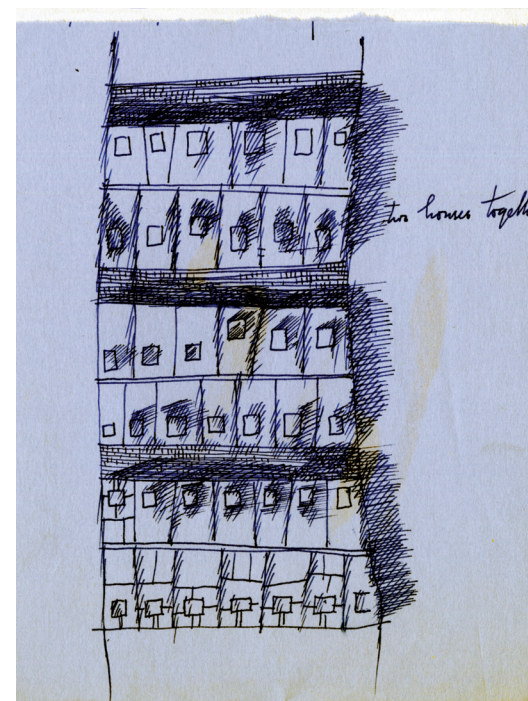 two houses togeth